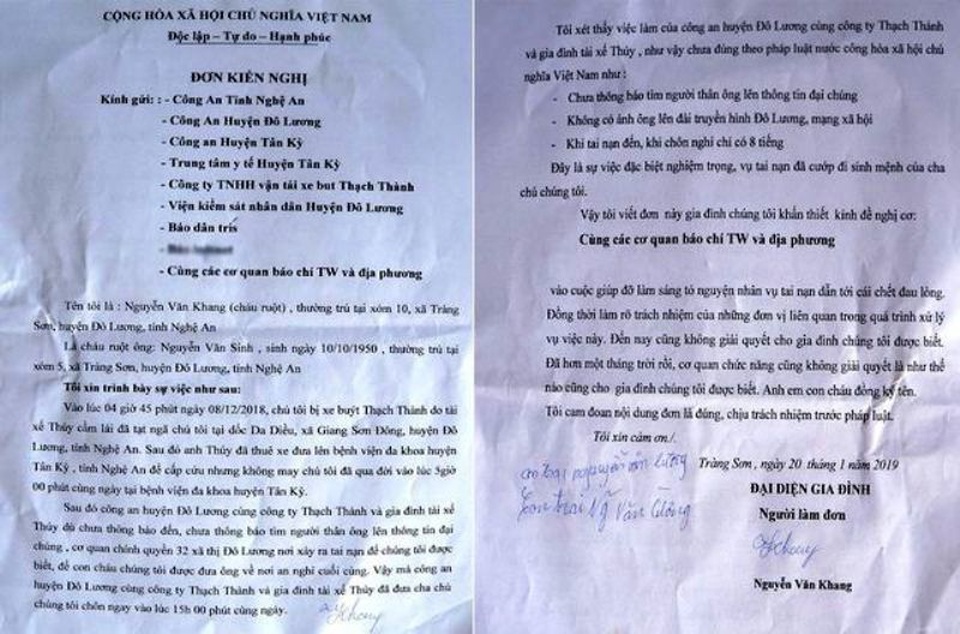 CỘNG HÒA XÃ HỘI CHỦ NGHĨA VIỆT NAM
Độc lập – Tự do – Hạnh phúc
ĐƠN KIẾN NGHỊ
Kính gửi: : - Công An Tỉnh Nghệ An
- Công An Huyện Đô Lương
- Công an Huyện Tân Kỳ
- Trung tâm y tế Huyện Tân Kỳ
- Công ty TNHH vận tải xe but Thạch Thành
- Viện kiểm sát nhân dân Huyện Đô Lương
- Báo dân trís
- Cùng các cơ quan báo chí TW và địa phương
Tên tôi là : Nguyễn Văn Khang (cháu ruột) , thường trú tại xóm 10, xã Tràng
Sơn, huyện Đô Lương, tỉnh Nghệ An
Là cháu ruột ông: Nguyễn Văn Sinh , sinh ngày 10/10/1950 , thường trú tại
xóm 5, xã Tràng Sơn, huyện Đô Lương, tỉnh Nghệ An
Tôi xin trình bày sự việc như sau:
Vào lúc 04 giờ 45 phút ngày 08/12/2018, chú tôi bị xe buýt Thạch Thành do tài
xế Thủy cầm lái đã tạt ngã chú tôi tại dốc Da Diều, xã Giang Sơn Đông, huyện Đô
Lương, tỉnh Nghệ An. Sau đó anh Thủy đã thuê xe đưa lên bệnh viện đa khoa huyện
Tân Kỳ , tỉnh Nghệ An để cấp cứu nhưng không may chú tôi đã qua đời vào lúc 5giờ
00 phút cùng ngày tại bệnh viện đa khoa huyện Tân Kỳ.
Sau đó công an huyện Đô Lương cùng công ty Thạch Thành và gia đình tài xế
Thủy dù chưa thông báo đến, chưa thông báo tìm người thân ông lên thông tin đại
chúng , cơ quan chính quyền 32 xã thị Đô Lương nơi xảy ra tai nạn để chúng tôi được
biết, để con cháu chúng tôi được đưa ông về nơi an nghỉ cuối cùng. Vậy mà công an
huyện Đô Lương cùng công ty Thạch Thành và gia đình tài xế Thủy đã đưa cha chú
chúng tôi chôn ngay vào lúc 15h 00 phút cùng ngày.
Khang
Tôi xét thấy việc làm của công an huyện Đô Lương cùng công ty Thạch Thành
và gia đình tài xế Thủy , như vậy chưa đúng theo pháp luật nước cộng hòa xã hội chủ
nghĩa Việt Nam như :
- Chưa thông báo tìm người thân ông lên thông tin đại chúng
- Không có ảnh ông lên đài truyền hình Đô Lương, mạng xã hội
- Khi tai nạn đến, khi chôn nghỉ chỉ có 8 tiếng
Đây là sự việc đặc biệt nghiệm trọng, vụ tai nạn đã cướp đi sinh mệnh của cha
chú chúng tôi.
Vậy tôi viết đơn này gia đình chúng tôi khẩn thiết kính đề nghị cơ:
Cùng các cơ quan báo chí TW và địa phương
vào cuộc giúp đỡ làm sáng tỏ nguyện nhân vụ tai nạn dẫn tới cái chết đau lòng.
Đồng thời làm rõ trách nhiệm của những đơn vị liên quan trong quá trình xử lý
vụ việc này. Đến nay cũng không giải quyết cho gia đình chúng tôi được biết.
Đã hơn một tháng trời rồi, cơ quan chức năng cũng không giải quyết là như thế
nào cũng cho gia đình chúng tôi được biết. Anh em con cháu đồng ký tên.
Tôi cam đoan nội dung đơn là đúng, chịu trách nhiệm trước pháp luật.
Tôi xin cảm ơn./.
Tràng Sơn , ngày 20 tháng 1 năm 2019
con trai nguyễn văn Lương
con trai Ng Văn
ĐẠI DIỆN GIA ĐÌNH
Người làm đơn
Khang
Nguyễn Văn Khang